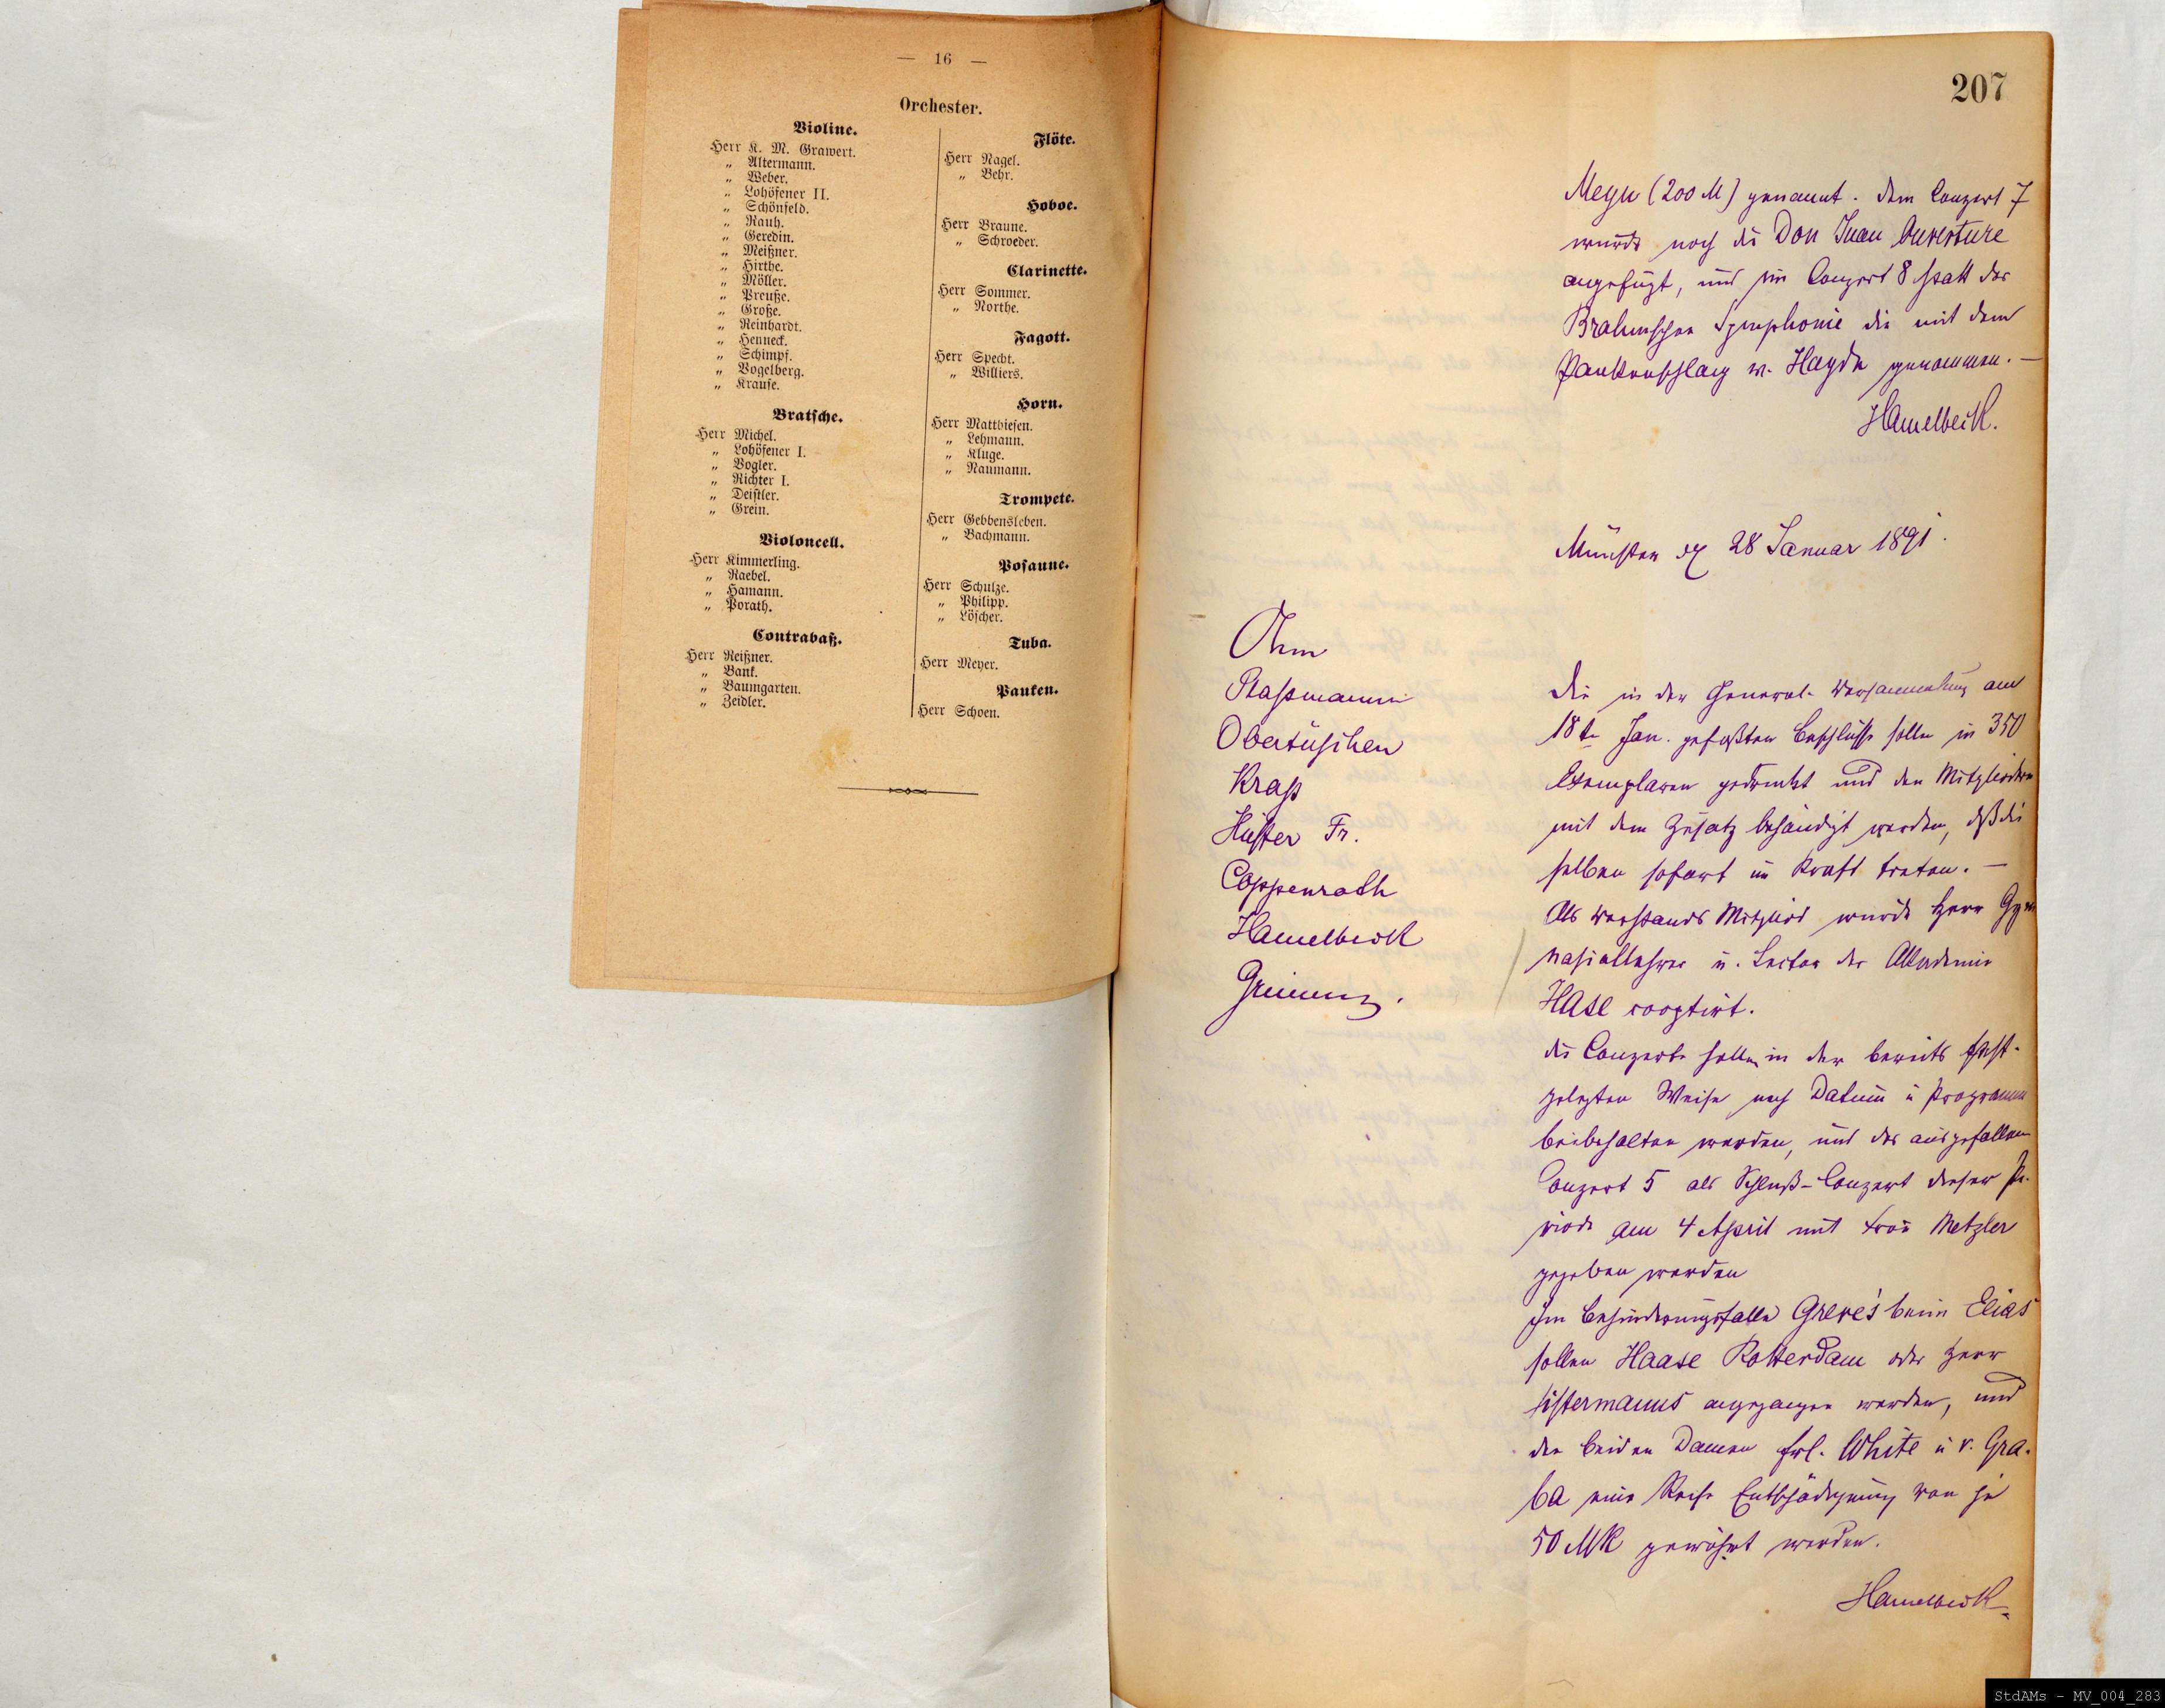 — 16 —
Orchester.
Violine.
Herr K. M. Grawert.
„ Altermann.
„ Weber.
„ Lohöfener II.
„ Schönfeld.
„ Rauh.
„ Geredin.
„ Meißner.
„ Hirthe.
„ Möller.
„ Preuße.
„ Große.
„ Reinhardt.
„ Henneck.
„ Schimpf.
„ Vogelberg.
„ Krause.
Bratsche.
Herr Michel.
„ Lohöfener I.
„ Vogler.
„ Richter I.
„ Deistler.
„ Grein.
Violoncell.
Herr Kimmerling.
„ Raebel.
„ Hamann.
„ Porath.
Contrabaß.
Herr Reißner.
„ Bank.
„ Baumgarten.
„ Zeidler.
Flöte.
Herr Nagel.
„ Behr.
Hoboe.
Herr Braune.
„ Schroeder.
Clarinette.
Herr Sommer.
„ Northe.
Fagott.
Herr Specht.
„ Williers.
Horn.
Herr Matthiesen.
„ Lehmann.
„ Kluge.
„ Naumann.
Trompete.
Herr Gebbensleben.
„ Bachmann.
Posaune.
Herr Schulze.
„ Philipp.
„ Löscher.
Tuba.
Herr Meyer.
Pauken.
Herr Schoen.
207
(200 M) genannt. Dem Conzert 7
wurde noch die Don Juan Ouverture
angefügt, und im Conzert 8 statt der
Brahmschen Symphonie die mit dem
Paukenschlag v. Haydn genommen. —
Hamelbeck.
Münster 28 Januar 1891.
Ohm
Plassmann
Obertüschen
Krass
Hüffer Fr.
Coppenrath
Hamelbeck
Grimm.
Die in der General-Versammlung am
18t. Jan. gefaßten Beschlüsse sollen in 350
Exemplaren gedruckt und den Mitgliedern
mit dem Zusatz behändigt werden, daß die
selben sofort in Kraft treten. —
Als Vorstands Mitglied wurde Herr Gym
nasiallehrer u. Lector der Akademie
Hase cooptirt.
Die Conzerte sollen in der bereits fest-
gelegten Weise nach Datum u Programm
beibehalten werden, und das ausgefallene
Conzert 5 als Schluß-Conzert dieser Pe-
riode am 4 April mit Frau Metzler
gegeben werden
Im Behinderungsfalle Greve's beim Elias
sollen Haase Rotterdam oder Herr
Sistermanns angegangen werden, und
den beiden Damen Frl. White u v. Gra-
ba eine Reise Entschädigung von je
50 Mk gewährt werden.
Hamelbeck.
StdAMs - MV_004_283